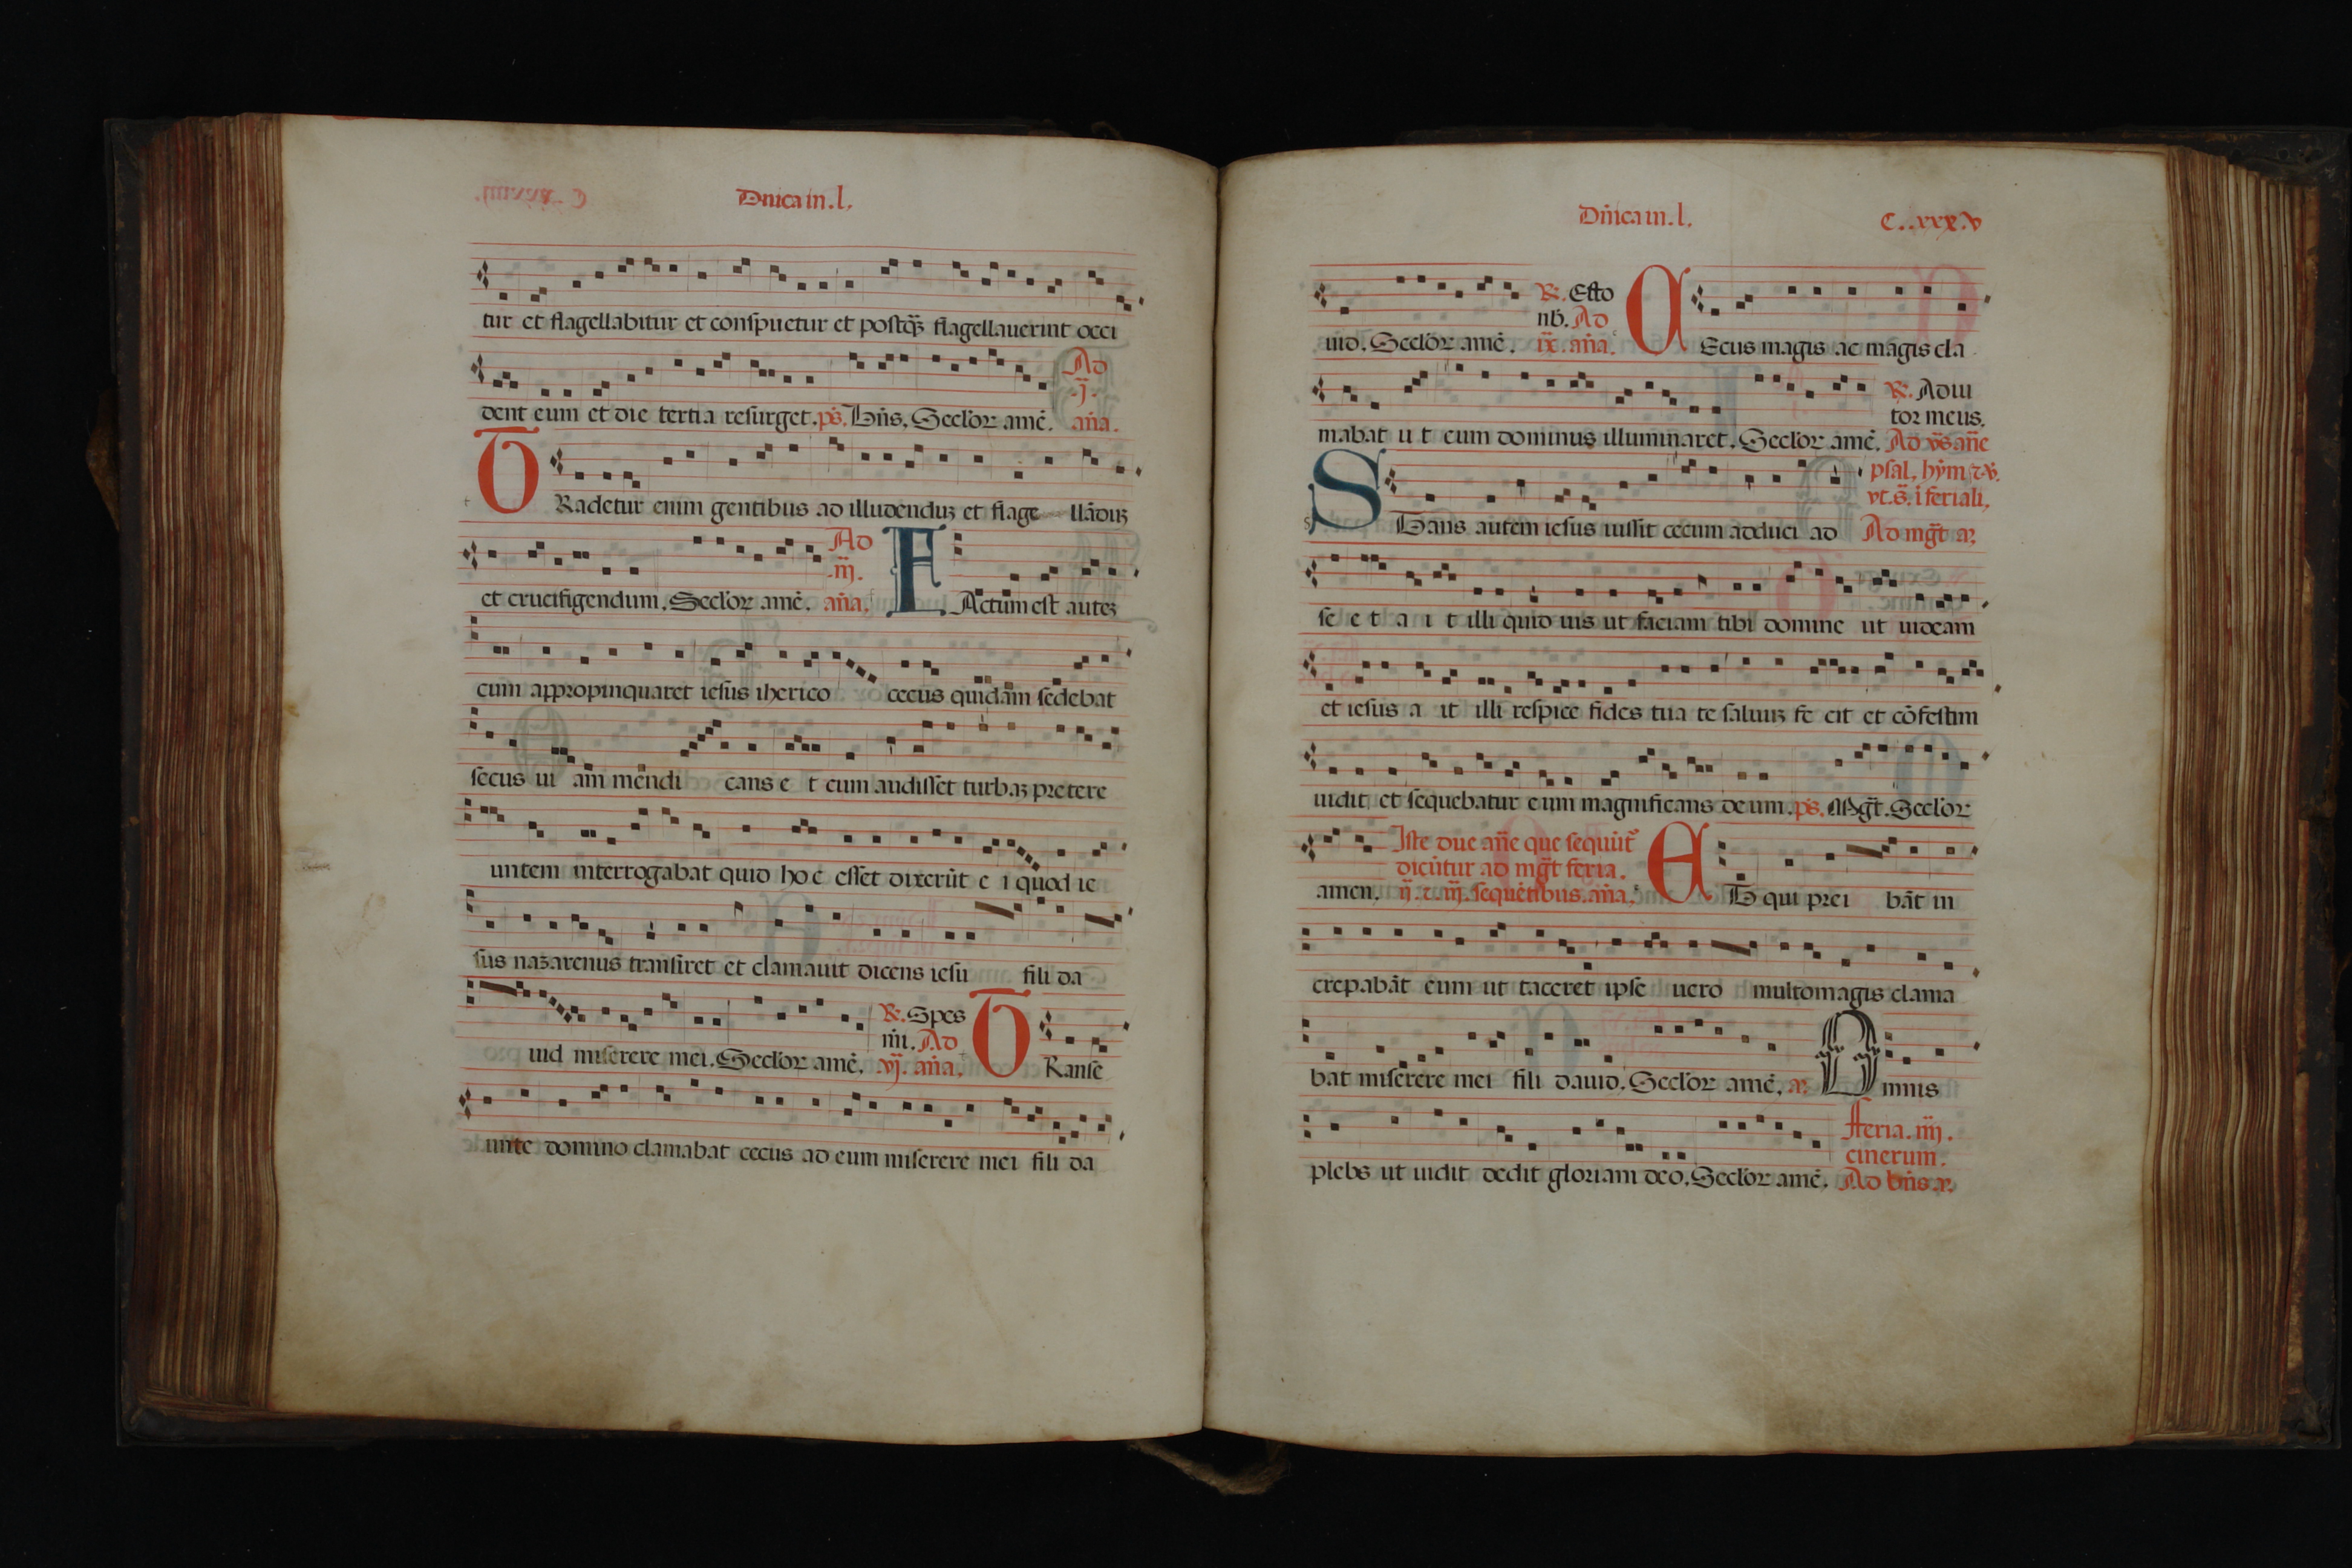 Dnica in .l.
tur et flagellabitur et conspuetur et postq̃ʒ flagellauerint occi
dent eum et die tertia resurget. ps̃. Dñs. Seclor̃ amẽ. Ad
.ij.
aña.
TRadetur enim gentibus ad illudenduʒ et flage llãduʒ
et crucifigendum. Seclor̃ amẽ. Ad
.iij.
aña. FActum est auteʒ
cum appropinquaret iesus iherico cecus quidam sedebat
secus ui am mendi cans e t cum audisset turbaʒ pretere
untem interrogabat quid hoc esset dixerũt e i quod ie
sus naʒarenus transiret et clamauit dicens iesu fili da
uid miserere mei. Seclor̃ amẽ. ℟. Spes
mi. Ad
.vj. aña. TRanse
unte domino clamabat cecus ad eum miserere mei fili da
Dñica in .l. C..xxx.v
uid. Seclor̃ amẽ. ℟. Esto
nb̃. Ad
ix. aña. CEcus magis ac magis cla
mabat u t eum dominus illuminaret. Seclor̃ amẽ. ℟. Adiu
tor meus.
Ad v̈s añe
psal. hỹm ⁊ ℣.
vt. s̃. ĩ feriali.
STans autem iesus iussit cecum adduci ad Ad mg̃t a.
se e t a i t illi quid uis ut faciam tibi domine ut uideam
et iesus a it illi respice fides tua te saluuʒ fe cit et cõfestim
uidit et sequebatur eum magnificans deum. ps̃. Mg̃t. Seclor̃
amen. Iste due añe que sequũt᷑
dicũtur ad mg̃t feria.
ij. ⁊. iij. sequẽtibus. aña. ET qui prei bãt in
crepabãt eum ut taceret ipse uero multomagis clama
bat miserere mei fili dauid. Seclor̃ amẽ. a. Omnis
plebs ut uidit dedit gloriam deo. Seclor̃ amẽ. Feria. iiij.
cinerum.
Ad bñs. a.